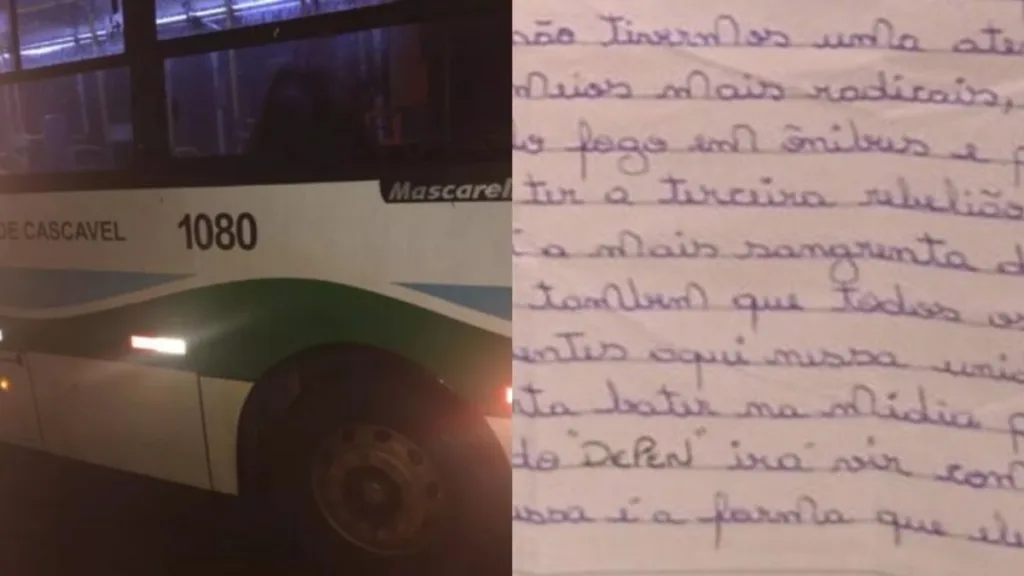 Mascarel
DE CASCAVEL 1080
não tivermos uma ate
meios mais radicais,
do fogo em ônibus e p
ter a terceira rebelião
é a mais sangrenta d
também que todos os
entes aqui nessa unid
ta bater na mídia p
do "DEPEN" irá vir com
essa é a forma que ele